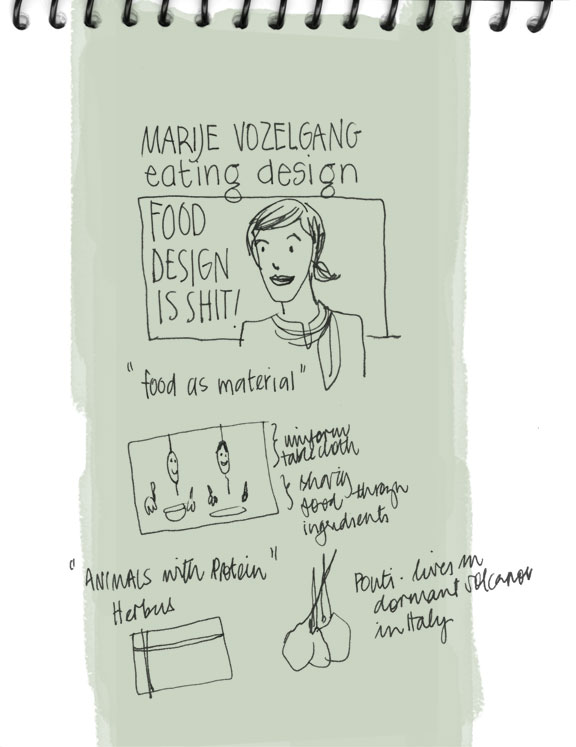 MARIJE VOZELGANG
eating design
FOOD
DESIGN
IS SHIT!
"food as material"
uniform
tablecloth
sharing
food through
ingredients
"ANIMALS with Protein"
Herbus
Ponti - lives in
dormant volcanoe
in Italy